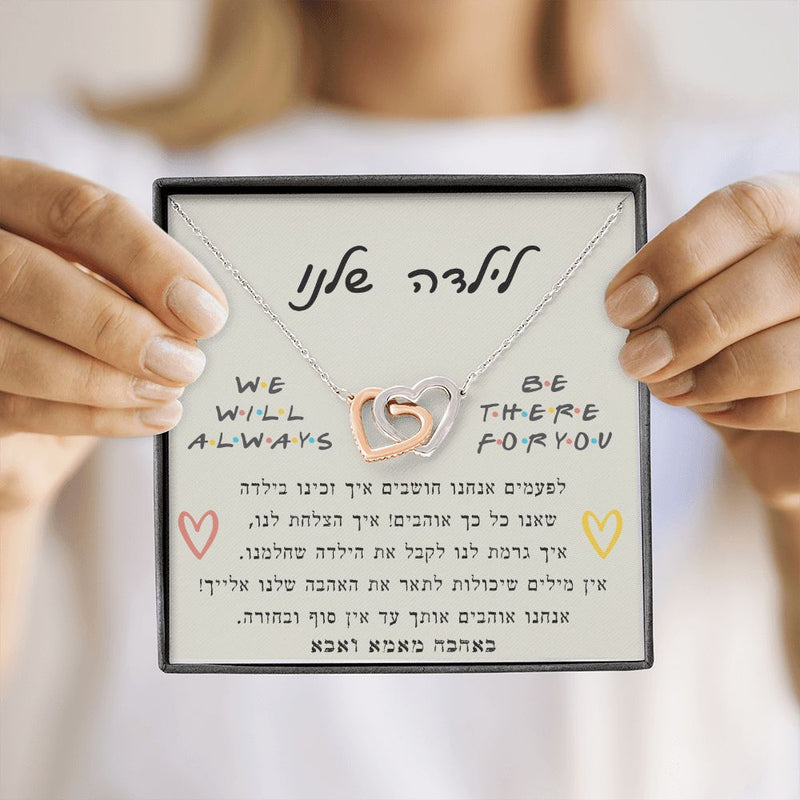 לילדה שלנו
WE
WILL
ALWAYS
BE
THERE
FOR YOU
לפעמים אנחנו חושבים איך זכינו בילדה
שאנו כל כך אוהבים! איך הצלחת לנו,
איך גרמת לנו לקבל את הילדה שחלמנו.
אין מילים שיכולות לתאר את האהבה שלנו אלייך!
אנחנו אוהבים אותך עד אין סוף ובחזרה.
באהבה מאמא ואבא